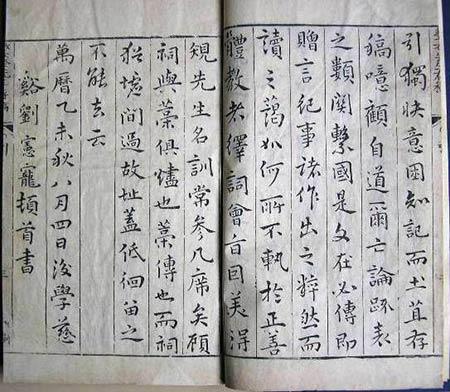 引獨快意困知記而土苴存
稿噫顧自道爾亡論疏表
之類関繫國是文在必傳即
贈言紀事諸作出之粹然而
讀之藹如何所不軌於正善
體教者繹詞會旨因美得
規先生名訓常參几席矣顧
祠與藁俱燼也藁傳也而祠
猶墟間過故址蓋低徊畱之
不能去云
萬曆乙未秋八月四日後學慈
谿劉憲寵頓首書